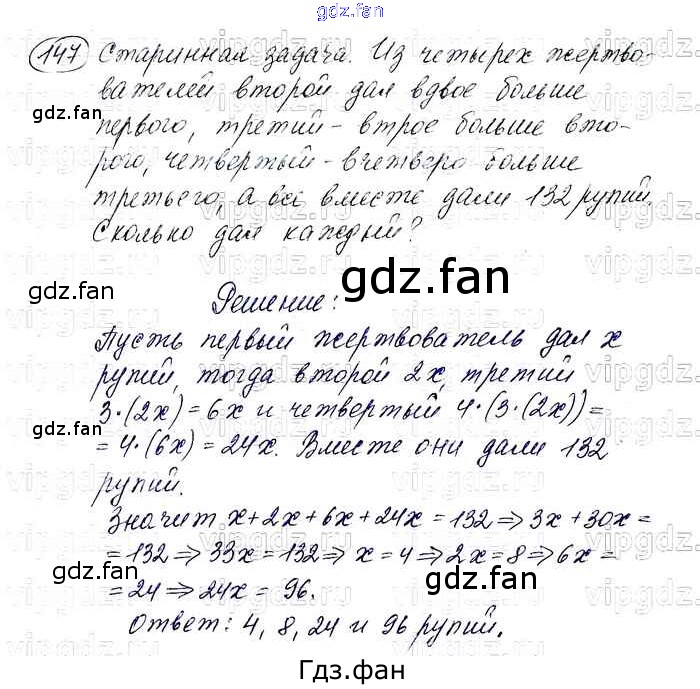 gdz.fan
147 Старинная задача. Из четырех жертво-
вателей второй дал вдвое больше
gdz.fan gdz.fan
первого, третий - втрое больше вто-
рого, четвертый - вчетверо больше
третьего, а все вместе дали 132 рупий.
Сколько дал каждый?
gdz.fan
gdz.fan
Решение:
Пусть первый жертвователь дал x
рупий, тогда второй 2x, третий
3·(2x) = 6x и четвертый 4·(3·(2x)) =
gdz.fan
= 4·(6x) = 24x. Вместе они дали 132
рупий.
Значит, x+2x+6x+24x = 132 ⇒ 3x + 30x =
= 132 ⇒ 33x = 132 ⇒ x = 4 ⇒ 2x = 8 ⇒ 6x =
gdz.fan gdz.fan
= 24 ⇒ 24x = 96.
Ответ: 4, 8, 24 и 96 рупий.
Гдз.фан